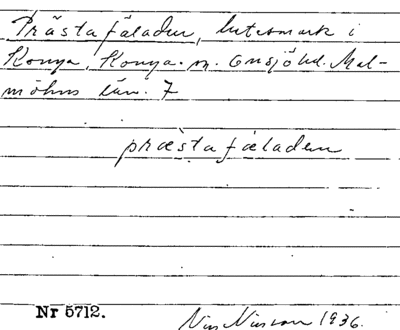 Prästafäladen, betesmark i
Konga, Konga sn. Onsjö hd. Mal-
möhus län. 7
præstafæladen
Nr 5712.
Nils Nilsson 1936.